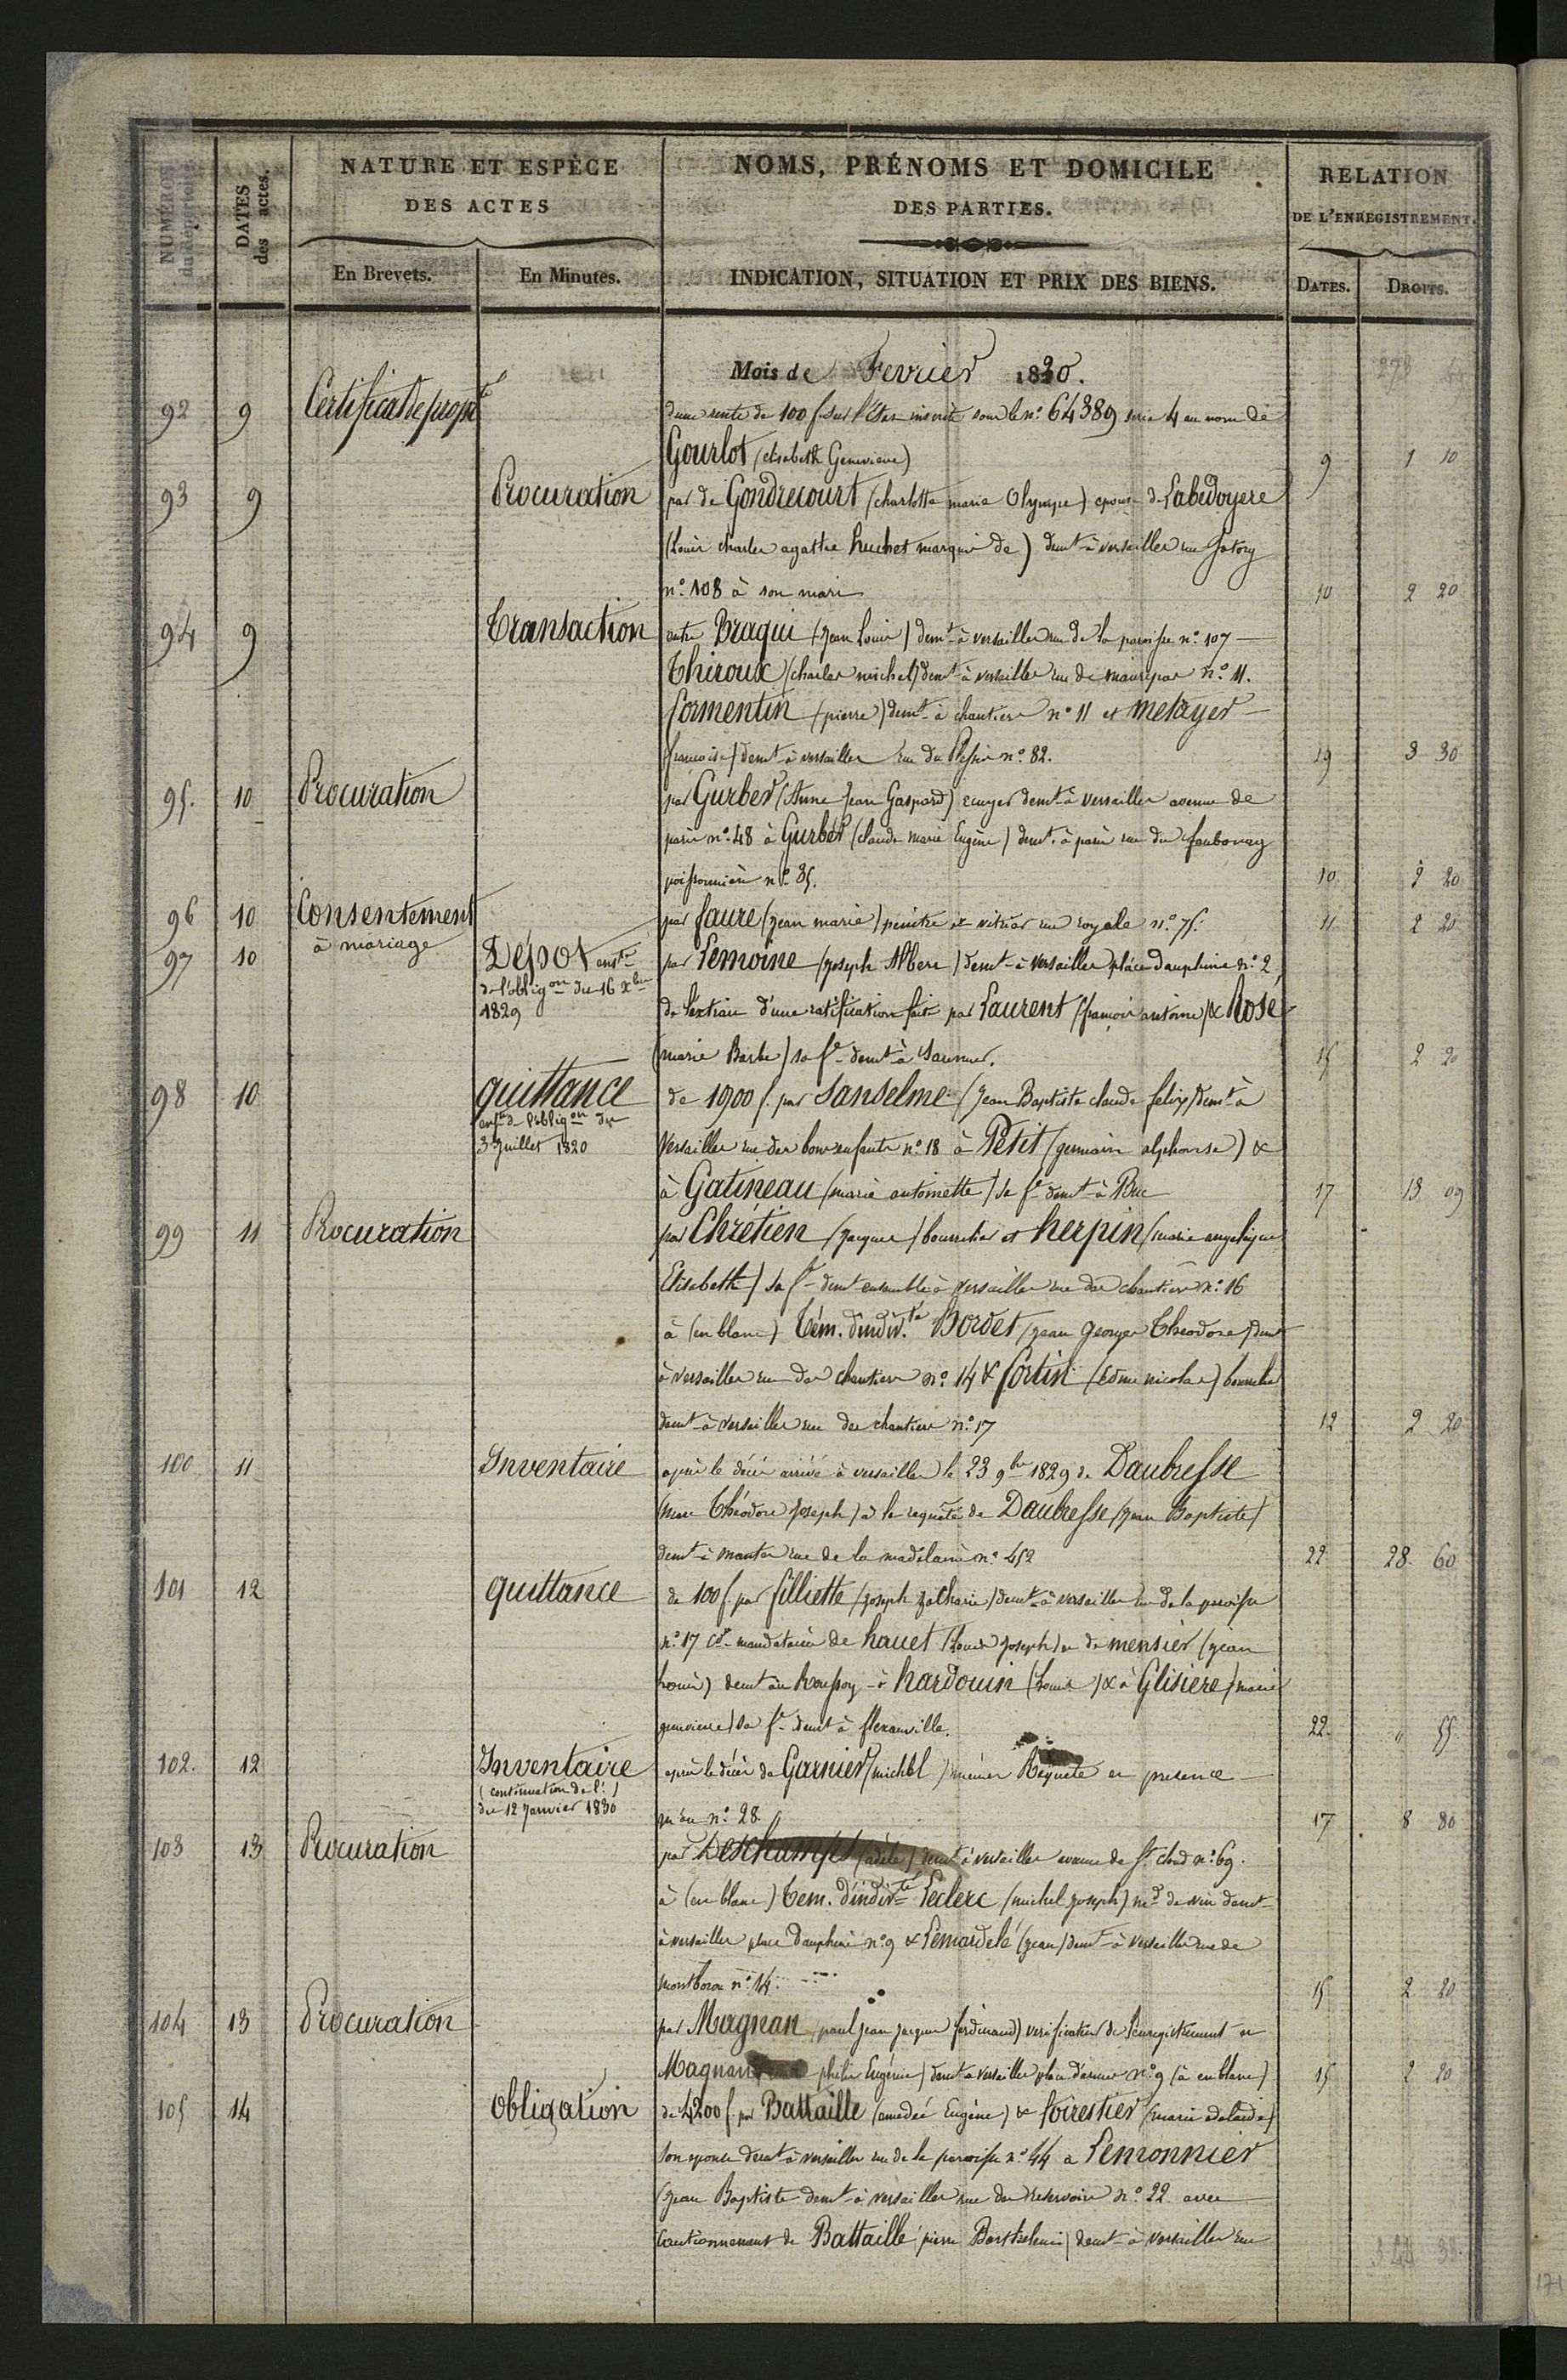 NUMÉROS du répertoire.
DATES des actes.
NATURE ET ESPÈCE
DES ACTES
En Brevets.
En Minutes.
NOMS, PRÉNOMS ET DOMICILE
DES PARTIES.
INDICATION, SITUATION ET PRIX DES BIENS.
RELATION
DE L'ENREGISTREMENT.
DATES.
DROITS.
Mois de Fevrier 1830.
92 9 Certificat de propté d'une rente de 100 f. sur l'état inscrite sous le n.° 64389 serie 4 au nom de
Gourlot (elisabeth Genevieve) 9 1 10
93 9 Procuration par de Gondrecourt (charlotte marie Olympe) epouse de Labedoyere
(Louis charles agathe huchet marquis de) demt à versailles rue Satory
n.° 108 à son mari 10 2 20
94 9 Transaction entre Braqui (jean Louis) demt à versailles rue de la paroisse n.° 107
Thiroux (charles michel) demt à versailles rue de maurepas n.° 11.
formentin (pierre) demt à chantiers n.° 11 et metayer
francoise) demt à versailles rue du Plessis n.° 82. 19 3 30
95. 10 Procuration par Gurber (Anne Jean Gaspard) ecuyer demt à versailles avenue de
paris n.° 48 à Gurber (claude marie Eugène) demt à paris rue du faubourg
poissonnière n.° 85. 10 2 20
96 10 Consentement à mariage par faure (jean marie) peintre et vitrier rue royale n.° 75. 11 2 20
97 10 Dépot par Lemoine (joseph Albert) demt à versailles place dauphine n.° 2
de l'obligon du 16 xbre
1829 de l'extrait d'une ratification faite par Laurent (françois antoine) & Rosé
(marie Barbe) sa fe demt à Saumur. 15 2 20
98 10 quittance de 1900 f. par Sanselme (Jean Baptiste claude felix) demt à
de l'obligon du
3 Juillet 1820 versailles rue des bons enfants n.° 18 à Petit (germain alphonse) &
à Gatineau (marie antoinette) sa fe demt à Buc 17 13 09
99 11 Procuration par Chrétien (jacques) bourrelier et herpin (marie angelique
Elisabeth) sa fe demt ensemble à versailles rue des chantiers n.° 16
à (en blanc) Tém. d'indivté Bordet (jean georges Theodore) demt
à versailles rue des chantiers n.° 14 & fortin (edme nicolas) bourrelier
demt à versailles rue des chantiers n.° 17 12 2 20
100 11 Inventaire après le décès arrivé à versailles le 23 9bre 1829 de Daubresse
(marc Théodore joseph) à la requête de Daubresse (jean Baptiste)
demt à mantes rue de la madelaine n.° 452 22 28 60
101 12 quittance de 100 f. par filliette (joseph zacharie) demt à versailles rue de la paroisse
n.° 17 mandataire de hauet (Louis joseph) & de mensier (jean
Louis) demt au Roussoy à hardouin (Louis) & à Glisiere (marie
genevieve) sa fe demt à flexanville. 22 " 55
102. 12 Inventaire après le décès de Garnier (michel) mêmes Requête et presence
(continuation de l'.)
du 12 Janvier 1830 qu'au n.° 28. 17 8 80
103 13 Procuration par Deschamps (adèle) demt à versailles avenue de St cloud n.° 69.
à (en blanc) Tem. d'indivté Leclerc (michel joseph) md de vin demt
à versailles place Dauphine n.° 9 & Lemardelé (jean) demt à versailles rue de
montboron n.° 14. 15 2 20
104 13 Procuration par Magnan (paul jean jacques ferdinand) verificateur de l'enregistrement et
Magnan Eugénie) demt à versailles place d'armes n.° 9 (à en blanc) 15 2 20
105 14 Obligation de 4200 f. par Battaille (amedée Eugène) & foirestier (marie adelaide)
son epouse demt à versailles rue de la paroisse n.° 44 à Lemonnier
(jean Baptiste demt à versailles rue des reservoirs n.° 22 avec
Cautionnement de Battaille pierre Barthelemi) demt à versailles rue
171